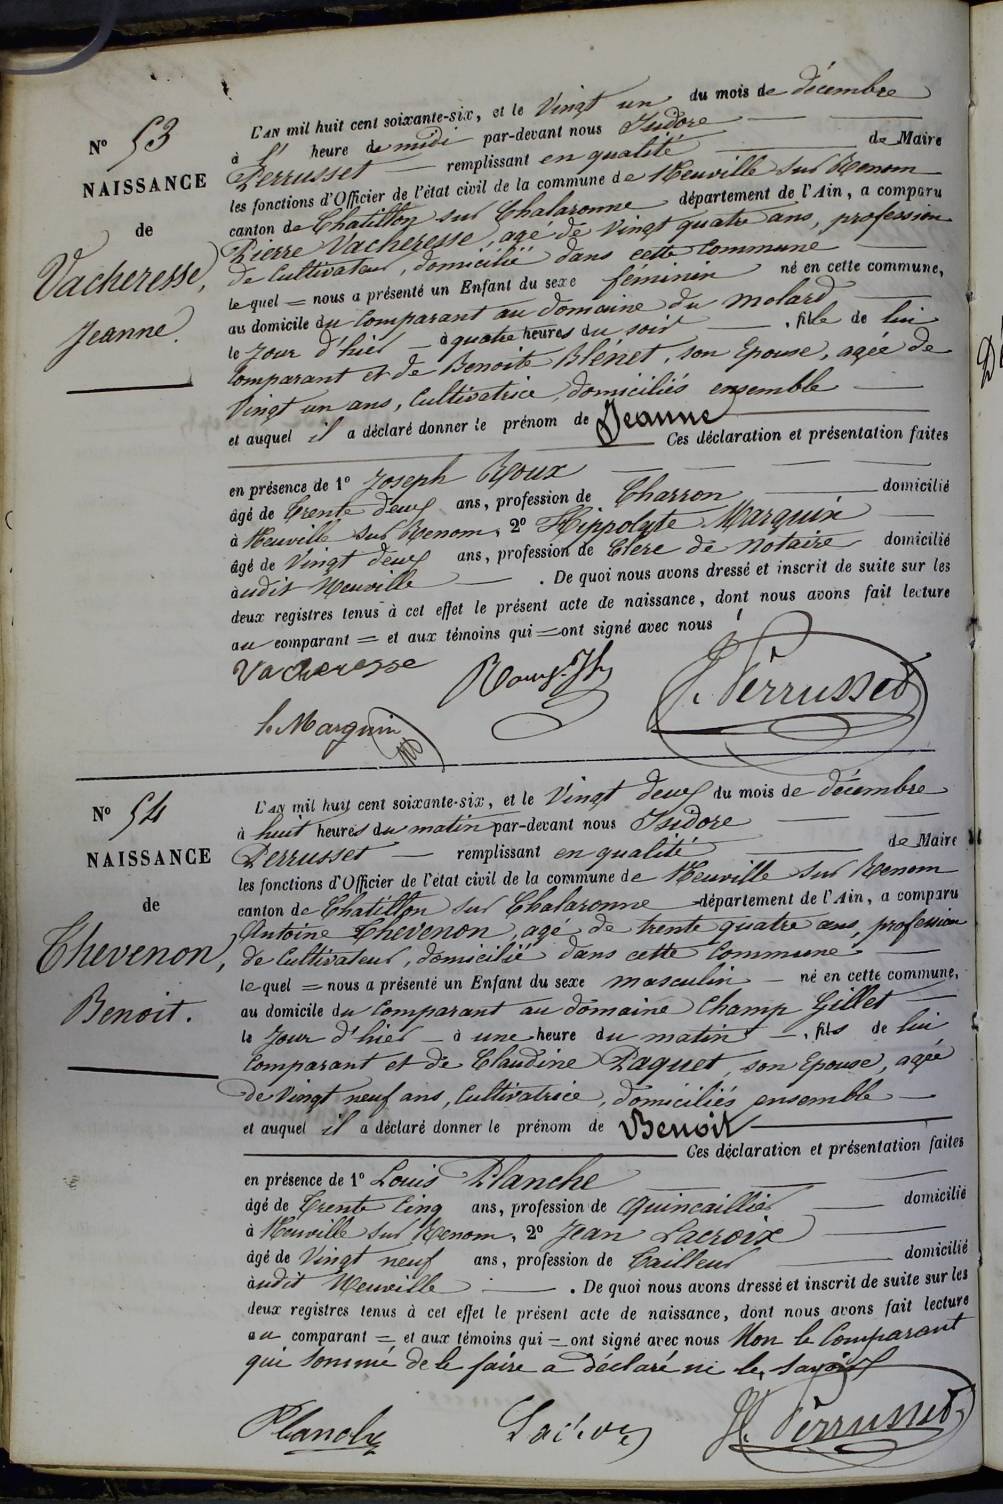 N° 53
NAISSANCE
de
Vacheresse,
Jeanne.
L'AN mil huit cent soixante-six, et le Vingt un du mois de décembre
à l' heure de midi par-devant nous Isidore
Perrusset remplissant en qualité de Maire
les fonctions d'Officier de l'état civil de la commune de Neuville sur Renom
canton de Chatillon sur Chalaronne département de l'Ain, a comparu
Pierre Vacheresse, agé de Vingt quatre ans, profession
de Cultivateur, domicilié dans cette Commune
lequel = nous a présenté un Enfant du sexe féminin né en cette commune,
au domicile du Comparant au domaine du Molard
le Jour d'hier à quatre heures du soir, fille de lui
Comparant et de Benoite Blénet, son Epouse, agée de
Vingt un ans, Cultivatrice, domiciliés ensemble
et auquel il a déclaré donner le prénom de Jeanne
Ces déclaration et présentation faites
en présence de 1° Joseph Roux
âgé de Trente deux ans, profession de Charron domicilié
à Neuville sur Renom, 2° Hippolyte Marquin
âgé de Vingt deux ans, profession de Clerc de Notaire domicilié
àudit Neuville. De quoi nous avons dressé et inscrit de suite sur les
deux registres tenus à cet effet le présent acte de naissance, dont nous avons fait lecture
au comparant = et aux témoins qui = ont signé avec nous
Vacheresse Roux Jh J. Perrusset
h. Marquin
N° 54
NAISSANCE
de
Thevenon,
Benoit.
L'AN mil huit cent soixante-six, et le Vingt deux du mois de décembre
à huit heures du matin par-devant nous Isidore
Perrusset remplissant en qualité de Maire
les fonctions d'Officier de l'état civil de la commune de Neuville sur Renom
canton de Chatillon sur Chalaronne département de l'Ain, a comparu
Antoine Thevenon, agé de trente quatre ans, profession
de Cultivateur, domicilié dans cette Commune
lequel = nous a présenté un Enfant du sexe masculin né en cette commune,
au domicile du Comparant au domaine Champ Gillet
le Jour d'hier à une heure du matin, fils de lui
Comparant et de Claudine Paquet, son Epouse, agée
de Vingt neuf ans, Cultivatrice, domiciliés ensemble
et auquel il a déclaré donner le prénom de Benoit
Ces déclaration et présentation faites
en présence de 1° Louis Planche
âgé de Trente Cinq ans, profession de Quincaillier domicilié
à Neuville sur Renom, 2° Jean Lacroix
âgé de Vingt neuf ans, profession de Tailleur domicilié
àudit Neuville. De quoi nous avons dressé et inscrit de suite sur les
deux registres tenus à cet effet le présent acte de naissance, dont nous avons fait lecture
au comparant = et aux témoins qui = ont signé avec nous Non le Comparant
qui sommé de le faire a déclaré ne le savoir
Planche Lacroix J. Perrusset